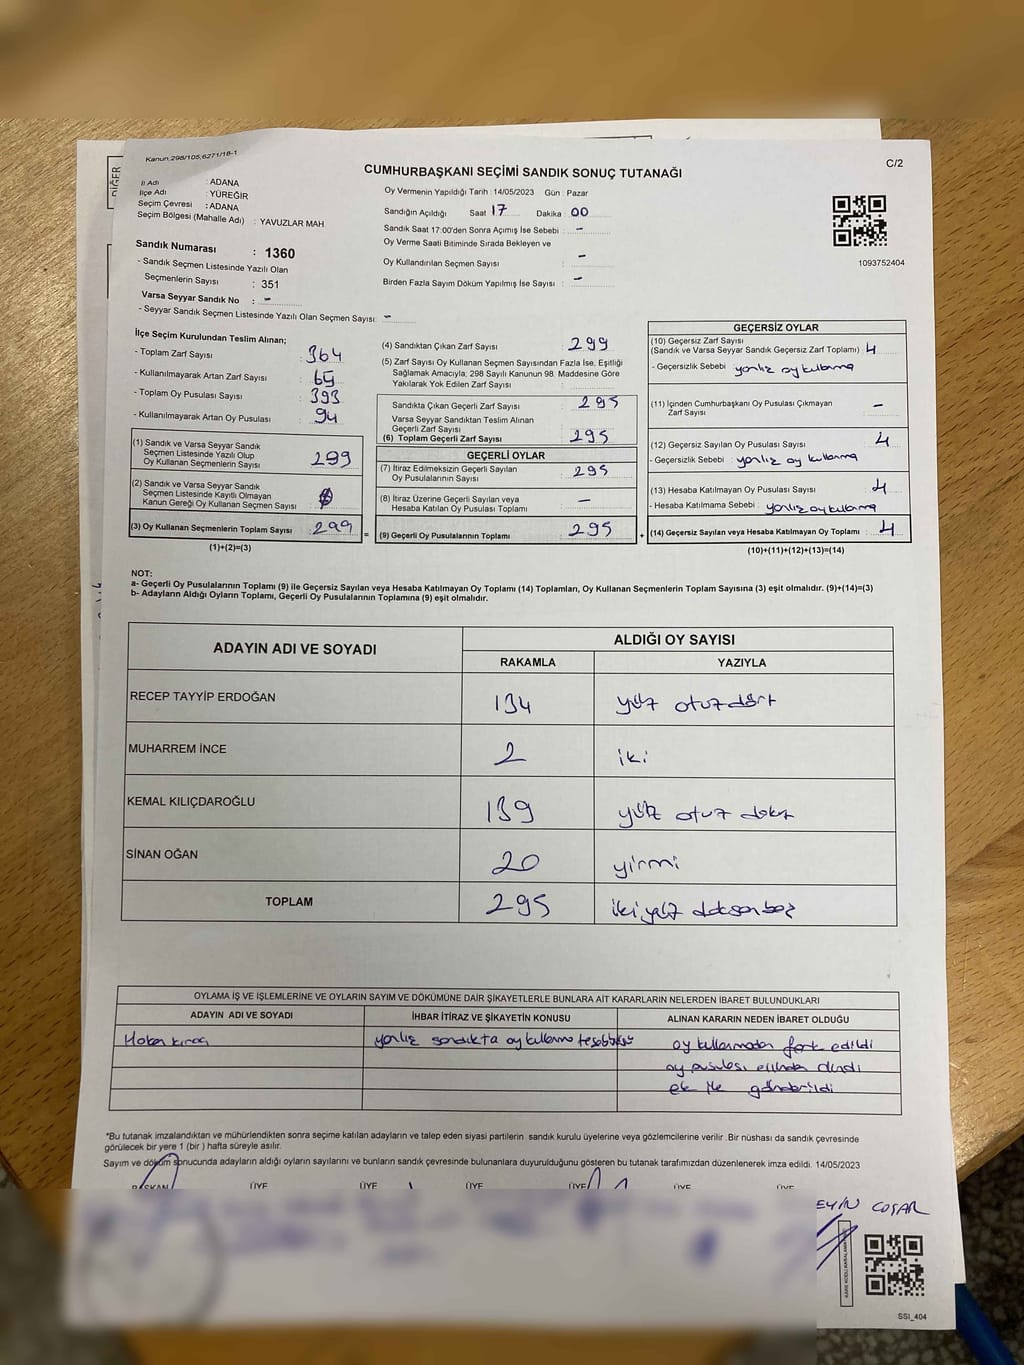 Kanun 298/105,6271/18-1
C/2
CUMHURBAŞKANI SEÇİMİ SANDIK SONUÇ TUTANAĞI
İl Adı : ADANA
İlçe Adı : YÜREĞİR
Seçim Çevresi : ADANA
Seçim Bölgesi (Mahalle Adı) : YAVUZLAR MAH
Sandık Numarası : 1360
- Sandık Seçmen Listesinde Yazılı Olan
Seçmenlerin Sayısı : 351
Varsa Seyyar Sandık No : -
- Seyyar Sandık Seçmen Listesinde Yazılı Olan Seçmen Sayısı: -
Oy Vermenin Yapıldığı Tarih : 14/05/2023 Gün : Pazar
Sandığın Açıldığı Saat 17 Dakika : 00
Sandık Saat 17:00'den Sonra Açımış İse Sebebi : -
Oy Verme Saati Bitiminde Sırada Bekleyen ve
Oy Kullandırılan Seçmen Sayısı : -
Birden Fazla Sayım Döküm Yapılmış İse Sayısı : -
1093752404
İlçe Seçim Kurulundan Teslim Alınan;
- Toplam Zarf Sayısı : 364
- Kullanılmayarak Artan Zarf Sayısı : 65
- Toplam Oy Pusulası Sayısı : 393
- Kullanılmayarak Artan Oy Pusulası : 94
(1) Sandık ve Varsa Seyyar Sandık
Seçmen Listesinde Yazılı Olup
Oy Kullanan Seçmenlerin Sayısı : 299
(2) Sandık ve Varsa Seyyar Sandık
Seçmen Listesinde Kayıtlı Olmayan
Kanun Gereği Oy Kullanan Seçmen Sayısı :
(3) Oy Kullanan Seçmenlerin Toplam Sayısı : 299
(1)+(2)=(3)
(4) Sandıktan Çıkan Zarf Sayısı : 299
(5) Zarf Sayısı Oy Kullanan Seçmen Sayısından Fazla İse, Eşitliği
Sağlamak Amacıyla; 298 Sayılı Kanunun 98. Maddesine Göre
Yakılarak Yok Edilen Zarf Sayısı :
Sandıkta Çıkan Geçerli Zarf Sayısı : 295
Varsa Seyyar Sandıktan Teslim Alınan
Geçerli Zarf Sayısı :
(6) Toplam Geçerli Zarf Sayısı : 295
GEÇERLİ OYLAR
(7) İtiraz Edilmeksizin Geçerli Sayılan
Oy Pusulalarının Sayısı : 295
(8) İtiraz Üzerine Geçerli Sayılan veya
Hesaba Katılan Oy Pusulası Toplamı : -
= (9) Geçerli Oy Pusulalarının Toplamı : 295 +
GEÇERSİZ OYLAR
(10) Geçersiz Zarf Sayısı
(Sandık ve Varsa Seyyar Sandık Geçersiz Zarf Toplamı) : 4
- Geçersizlik Sebebi : yanlız oy kullanma
(11) İçinden Cumhurbaşkanı Oy Pusulası Çıkmayan
Zarf Sayısı : -
(12) Geçersiz Sayılan Oy Pusulası Sayısı : 4
- Geçersizlik Sebebi : yanlız oy kullanma
(13) Hesaba Katılmayan Oy Pusulası Sayısı : 4
- Hesaba Katılmama Sebebi : yanlız oy kullanma
(14) Geçersiz Sayılan veya Hesaba Katılmayan Oy Toplamı : 4
(10)+(11)+(12)+(13)=(14)
NOT:
a- Geçerli Oy Pusulalarının Toplamı (9) ile Geçersiz Sayılan veya Hesaba Katılmayan Oy Toplamı (14) Toplamları, Oy Kullanan Seçmenlerin Toplam Sayısına (3) eşit olmalıdır. (9)+(14)=(3)
b- Adayların Aldığı Oyların Toplamı, Geçerli Oy Pusulalarının Toplamına (9) eşit olmalıdır.
ADAYIN ADI VE SOYADI
ALDIĞI OY SAYISI
RAKAMLA YAZIYLA
RECEP TAYYİP ERDOĞAN 134 yüz otuz dört
MUHARREM İNCE 2 iki
KEMAL KILIÇDAROĞLU 139 yüz otuz dokuz
SİNAN OĞAN 20 yirmi
TOPLAM 295 ikiyüz doksan beş
OYLAMA İŞ VE İŞLEMLERİNE VE OYLARIN SAYIM VE DÖKÜMÜNE DAİR ŞİKAYETLERLE BUNLARA AİT KARARLARIN NELERDEN İBARET BULUNDUKLARI
ADAYIN ADI VE SOYADI İHBAR İTİRAZ VE ŞİKAYETİN KONUSU ALINAN KARARIN NEDEN İBARET OLDUĞU
yanlız sandıkta oy kullanma teşebbüsü oy kullanmadan fark edildi
oy pusulası elinden alındı
ek ile gönderildi
*Bu tutanak imzalandıktan ve mühürlendikten sonra seçime katılan adayların ve talep eden siyasi partilerin sandık kurulu üyelerine veya gözlemcilerine verilir. Bir nüshası da sandık çevresinde
görülecek bir yere 1 (bir ) hafta süreyle asılır.
Sayım ve döküm sonucunda adayların aldığı oyların sayılarını ve bunların sandık çevresinde bulunanlara duyurulduğunu gösteren bu tutanak tarafımızdan düzenlenerek imza edildi. 14/05/2023
BAŞKAN ÜYE ÜYE ÜYE ÜYE ÜYE ÜYE
COŞAR
SSI_404